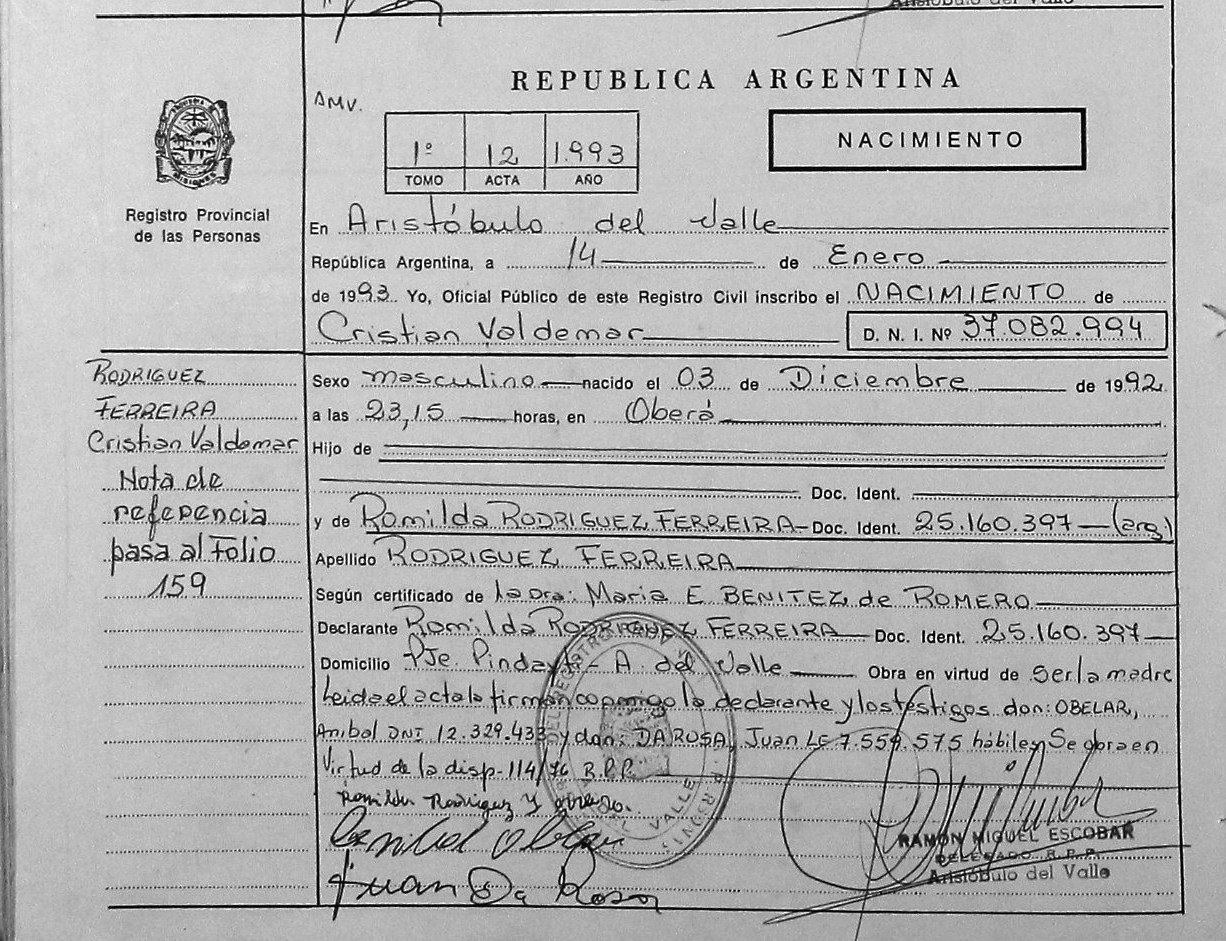 Aristóbulo del Valle
REPUBLICA ARGENTINA
AMV.
NACIMIENTO
1º 12 1.993
TOMO ACTA AÑO
MISIONES
Registro Provincial
de las Personas
En Aristóbulo del Valle
República Argentina, a 14 de Enero
de 1993. Yo, Oficial Público de este Registro Civil inscribo el NACIMIENTO de
Cristian Valdemar D. N. I. Nº 37.082.994
RODRIGUEZ
FERREIRA
Cristian Valdemar
Nota de
referencia
pasa al Folio
159
Sexo masculino nacido el 03 de Diciembre de 1992
a las 23,15 horas, en Oberá
Hijo de
Doc. Ident.
y de Romilda RODRIGUEZ FERREIRA Doc. Ident. 25.160.397 (arg)
Apellido RODRIGUEZ FERREIRA
Según certificado de la Dra: Maria E BENITEZ de ROMERO
Declarante Romilda RODRIGUEZ FERREIRA Doc. Ident. 25.160.397
Domicilio Pje. A. del Valle Obra en virtud de ser la madre
Leida el acta la firman conmigo la declarante y los testigos don: OBELAR,
Anibal DNI 12.329.433 y don: DA ROSA, Juan LE 7.559.575 hábiles Se obra en
Virtud de la disp-114/76 R.P.P.
Romilda Rodriguez
Anibal Obelar
Juan Da Rosa
RAMÓN MIGUEL ESCOBAR
DELEGADO R.P.P.
Aristóbulo del Valle